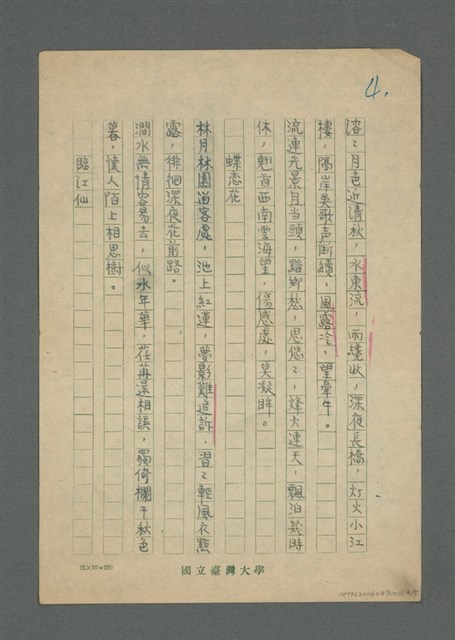 4.
溶〻月色近清秋，水東流，雨霽收，深夜長橋，灯火小江
樓，隔岸吳歌声断續，風露冷，望牽牛。
流連光景月当頭，豁鄉愁，思悠〻，烽火連天，飄泊幾時
休，翹首西南雲海望，傷感處，莫凝眸。
蝶恋花
林月林園逅客處，池上紅蓮，夢影難追訴，習〻輕風衣點
露，徘徊深夜花前路。
澗水無情容易去，似水年華，荏苒還相誤，獨倚欄干秋色
暮，懷人陌上相思樹。
臨江仙
國立臺灣大學